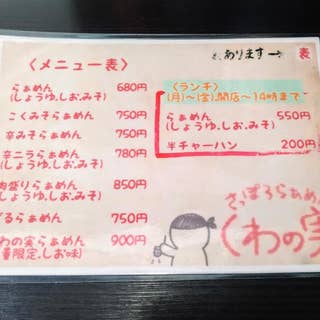 あります→ 表
〈メニュー表〉
らぁめん 680円
(しょうゆ.しお.みそ)
こくみそらぁめん 750円
辛みそらぁめん 750円
辛ニラらぁめん 780円
肉盛りらぁめん 850円
(しょうゆ.しお.みそ)
ざるらぁめん 750円
くわの実らぁめん 900円
量限定.しお味)
〈ランチ〉
(月)~(金).開店~14時まで
らぁめん 550円
(しょうゆ.しお.みそ)
半チャーハン 200円
さっぽろらぁめん
くわの実